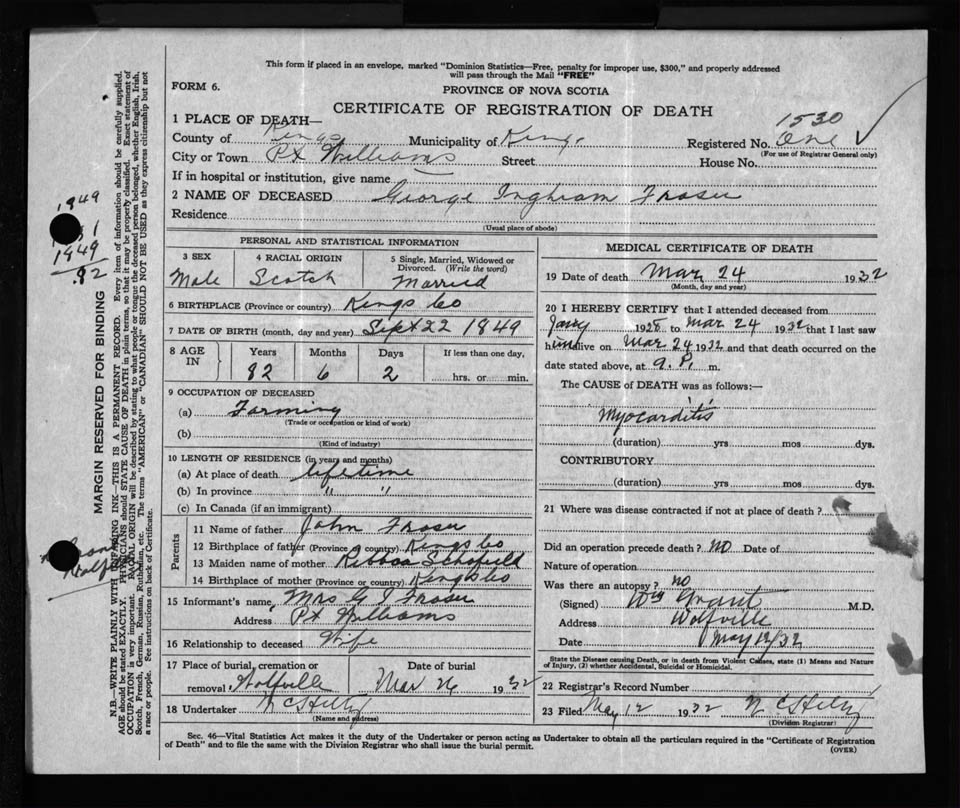 This form if placed in an envelope, marked "Dominion Statistics—Free, penalty for improper use, $300," and properly addressed
will pass through the Mail "FREE"
FORM 6.
PROVINCE OF NOVA SCOTIA
CERTIFICATE OF REGISTRATION OF DEATH
1530
1 PLACE OF DEATH—
County of Kings Municipality of Kings Registered No. One
(For use of Registrar General only)
City or Town Pt Williams Street House No.
If in hospital or institution, give name
2 NAME OF DECEASED George Ingham Fraser
Residence
(Usual place of abode)
PERSONAL AND STATISTICAL INFORMATION
3 SEX 4 RACIAL ORIGIN 5 Single, Married, Widowed or
Divorced. (Write the word)
Male Scotch Married
6 BIRTHPLACE (Province or country) Kings Co
7 DATE OF BIRTH (month, day and year) Sept 22 1849
8 AGE IN Years Months Days If less than one day,
82 6 2 hrs. or min.
9 OCCUPATION OF DECEASED
(a) Farming
(Trade or occupation or kind of work)
(b)
(Kind of industry)
10 LENGTH OF RESIDENCE (in years and months)
(a) At place of death lifetime
(b) In province " "
(c) In Canada (if an immigrant)
Parents
11 Name of father John Fraser
12 Birthplace of father (Province or country) Kings Co
13 Maiden name of mother Schofield
14 Birthplace of mother (Province or country) Kings Co
15 Informant's name Mrs G I Fraser
Address Pt Williams
16 Relationship to deceased Wife
17 Place of burial, cremation or Date of burial
removal Wolfville Mar 26 1932
18 Undertaker
(Name and address)
MEDICAL CERTIFICATE OF DEATH
19 Date of death Mar 24 1932
(Month, day and year)
20 I HEREBY CERTIFY that I attended deceased from
Jany 1928 to Mar 24 1932 that I last saw
him alive on Mar 24 1932 and that death occurred on the
date stated above, at m.
The CAUSE OF DEATH was as follows:—
Myocarditis
(duration) yrs mos dys.
CONTRIBUTORY
(duration) yrs mos dys.
21 Where was disease contracted if not at place of death?
Did an operation precede death? No Date of
Nature of operation
Was there an autopsy? no
(Signed) Wm Grant M.D.
Address Wolfville
Date May 12/32
State the Disease causing Death, or in death from Violent Causes, state (1) Means and Nature
of Injury, (2) whether Accidental, Suicidal or Homicidal.
22 Registrar's Record Number
23 Filed May 12 1932
(Division Registrar)
Sec. 46—Vital Statistics Act makes it the duty of the Undertaker or person acting as Undertaker to obtain all the particulars required in the "Certificate of Registration
of Death" and to file the same with the Division Registrar who shall issue the burial permit.
(OVER)
1949
1949
.92
MARGIN RESERVED FOR BINDING
N.B.—WRITE PLAINLY WITH UNFADING INK—THIS IS A PERMANENT RECORD. Every item of information should be carefully supplied.
AGE should be stated EXACTLY. PHYSICIANS should STATE CAUSE OF DEATH in plain terms, so that it may be properly classified. Exact statement of
OCCUPATION is very important. RACIAL ORIGIN will be described by stating to what people or tongue the deceased person belonged, whether English, Irish,
Scotch, French, German, Russian, Ruthenian, etc. The terms "AMERICAN" or "CANADIAN" SHOULD NOT BE USED as they express citizenship but not
a race or people. See instructions on back of Certificate.